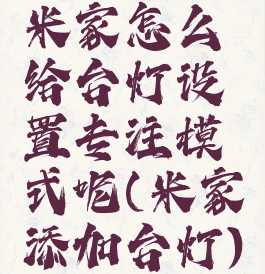 米家怎么
给台灯设
置专注模
式呢(米家
添加台灯)